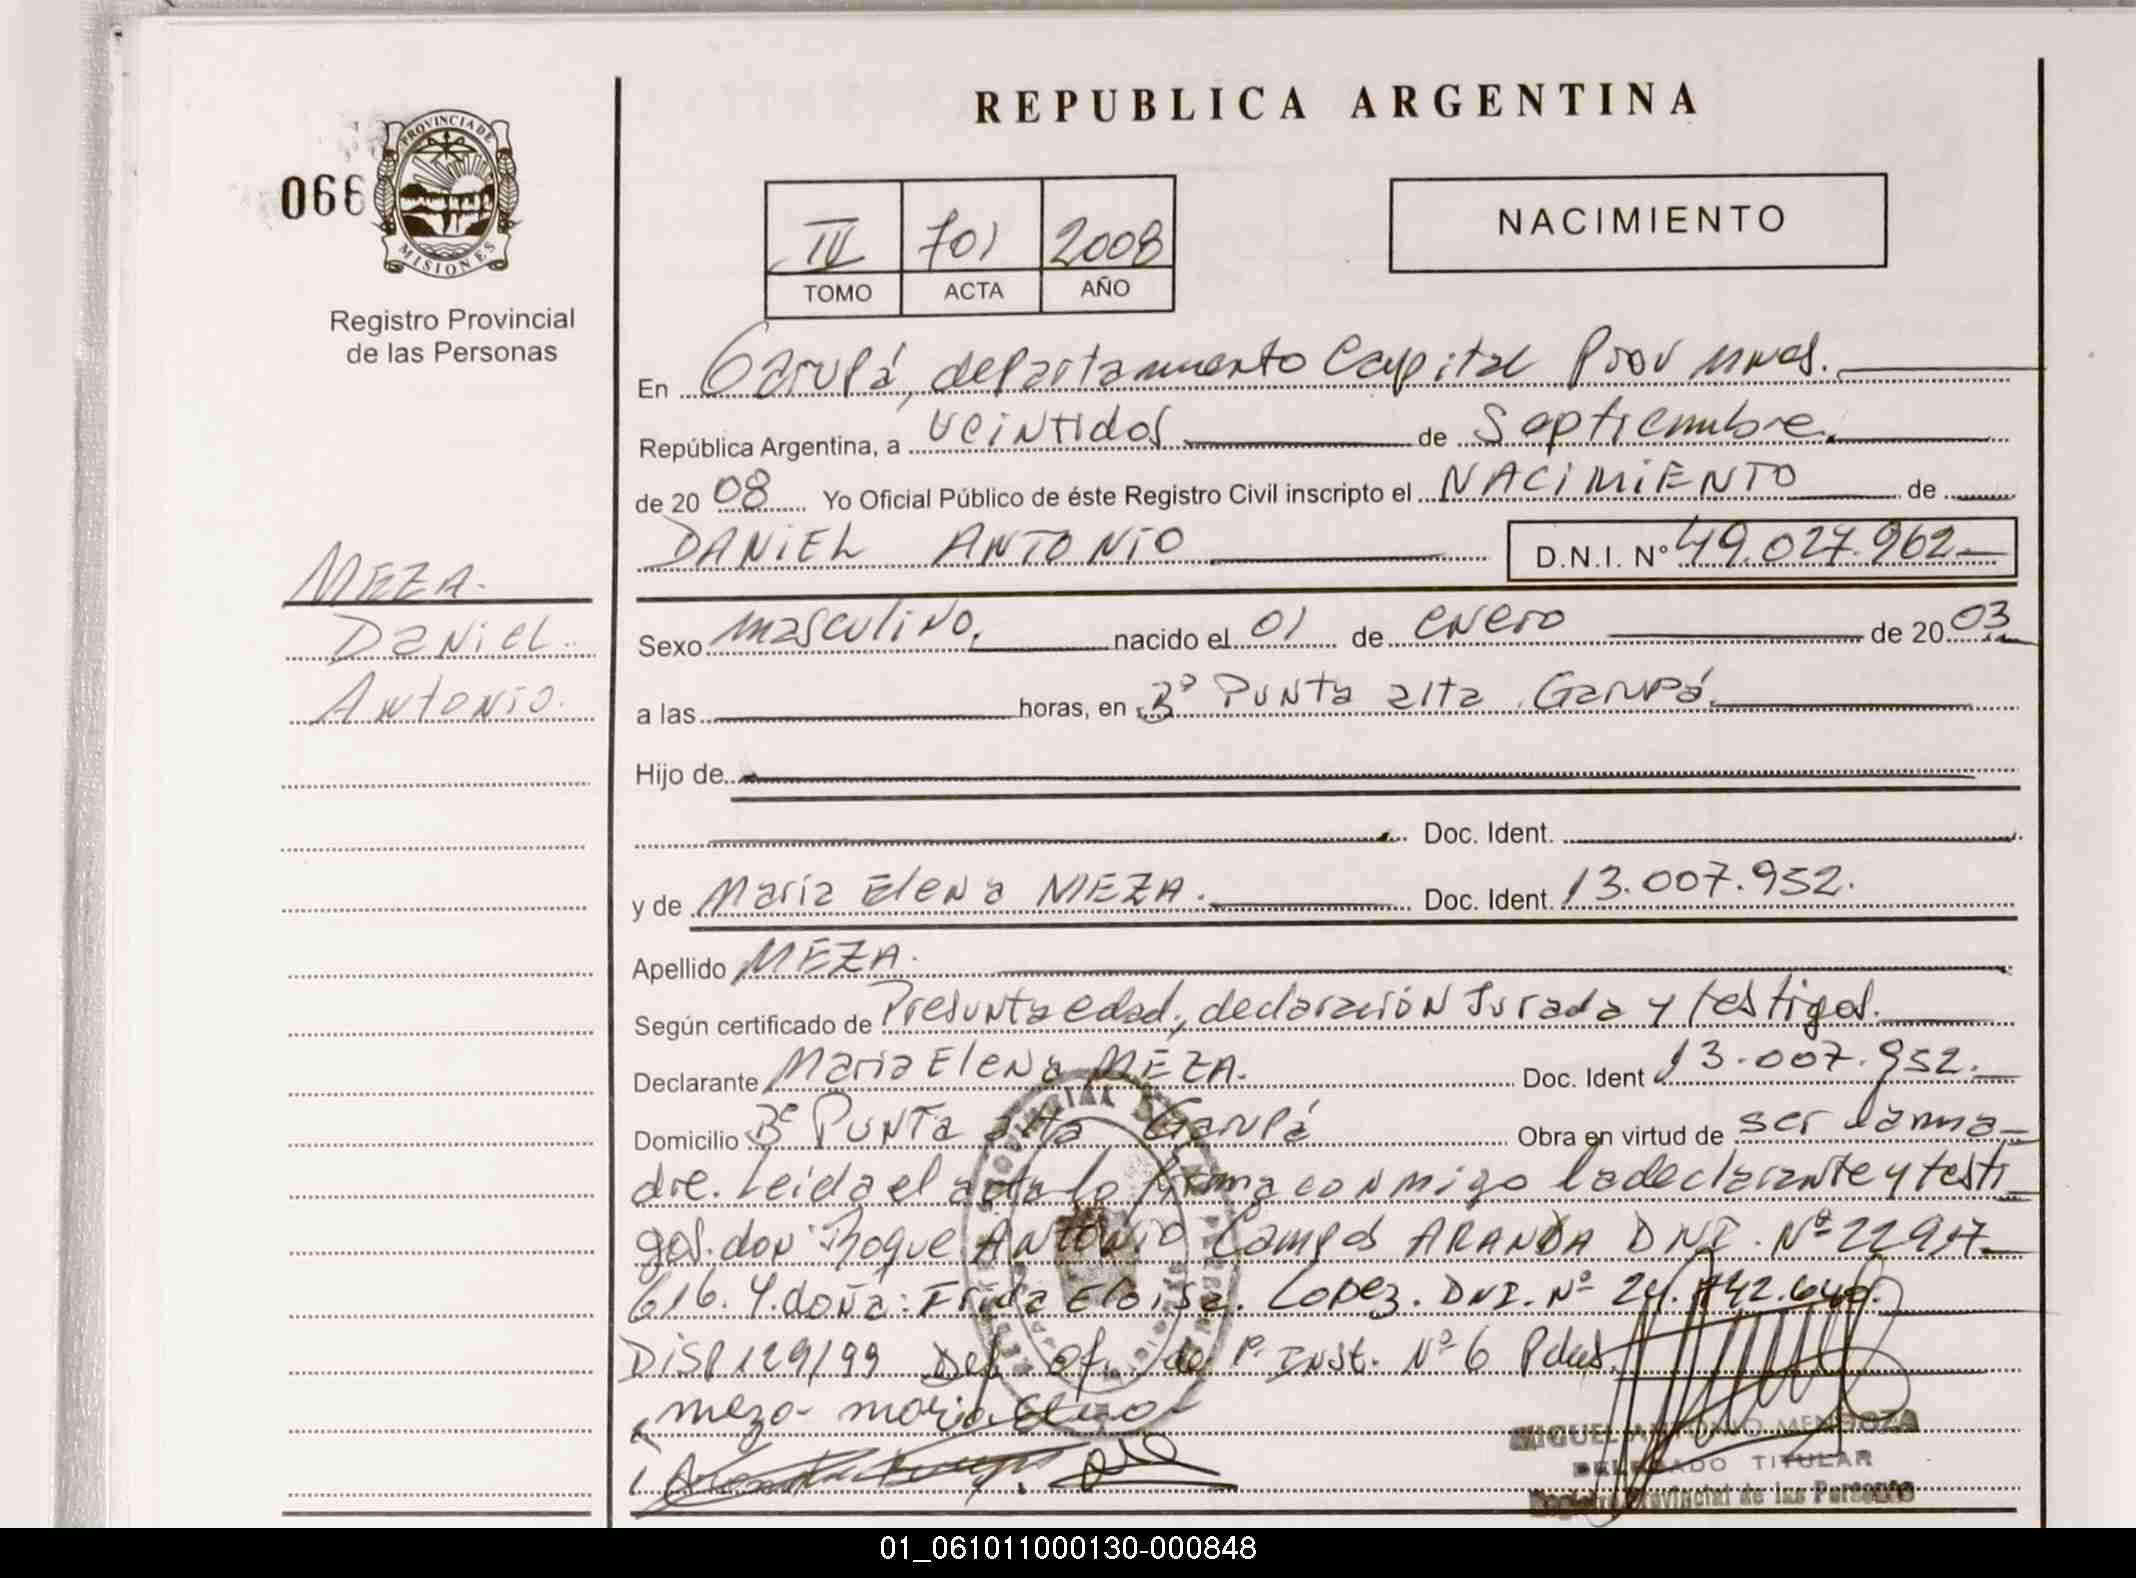 REPUBLICA ARGENTINA
066
PROVINCIA DE
MISIONES
Registro Provincial
de las Personas
IV 701 2008
TOMO ACTA AÑO
NACIMIENTO
En Garupá, departamento Capital Prov Mnes.
República Argentina, a veintidos de Septiembre.
de 20 08 Yo Oficial Público de éste Registro Civil inscripto el NACIMIENTO de
DANIEL ANTONIO D.N.I. Nº 49.027.962
MEZA.
Daniel.
Antonio.
Sexo masculino, nacido el 01 de enero de 20 03
a las horas, en Bº Punta alta Garupá.
Hijo de
Doc. Ident.
y de Maria Elena MEZA. Doc. Ident. 13.007.952.
Apellido MEZA.
Según certificado de Presunta edad, declaración Jurada y testigos.
Declarante Maria Elena MEZA. Doc. Ident 13.007.952.
Domicilio Bº Punta alta Garupá Obra en virtud de ser la ma
dre. Leida el acta lo firma conmigo la declarante y testi
gos. don: Roque ANTONIO Campos ARANDA DNI. Nº 22957
616. Y. doña: Frida Eloisa. Lopez. DNI. Nº
DISP 129/99 Def. Of. de 1º Inst. Nº 6 Pdas.
meza maria elena
MIGUEL ANTONIO MENDOZA
DELEGADO TITULAR
Registro Provincial de las Personas
01_061011000130-000848